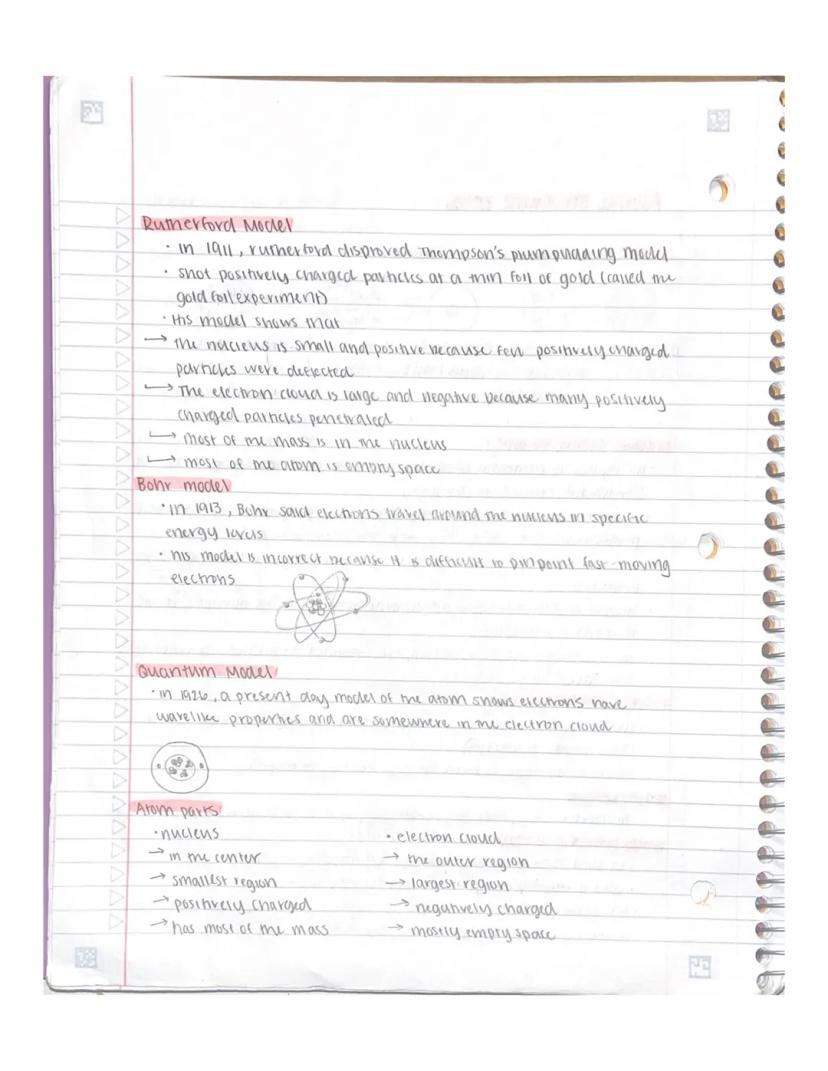 Rutherford Model
· In 1911, rutherford disproved Thompson's plumpudding model
· shot positively charged particles at a thin foil of gold (called the
gold foil experiment)
· His model shows that
→ the nucleus is small and positive because few positively charged
particles were deflected
→ The electron cloud is large and negative because many positively
charged particles penetrated
→ most of the mass is in the nucleus
→ most of the atom is empty space
Bohr model
· In 1913, Bohr said electrons travel around the nucleus in specific
energy levels
· his model is incorrect because it is difficult to pinpoint fast-moving
electrons
Quantum Model
· in 1926, a present day model of the atom shows electrons have
wavelike properties and are somewhere in the electron cloud
Atom parts
· nucleus
→ in the center
→ smallest region
→ positively charged
→ has most of the mass
· electron cloud
→ the outer region
→ largest region
→ negatively charged
→ mostly empty space